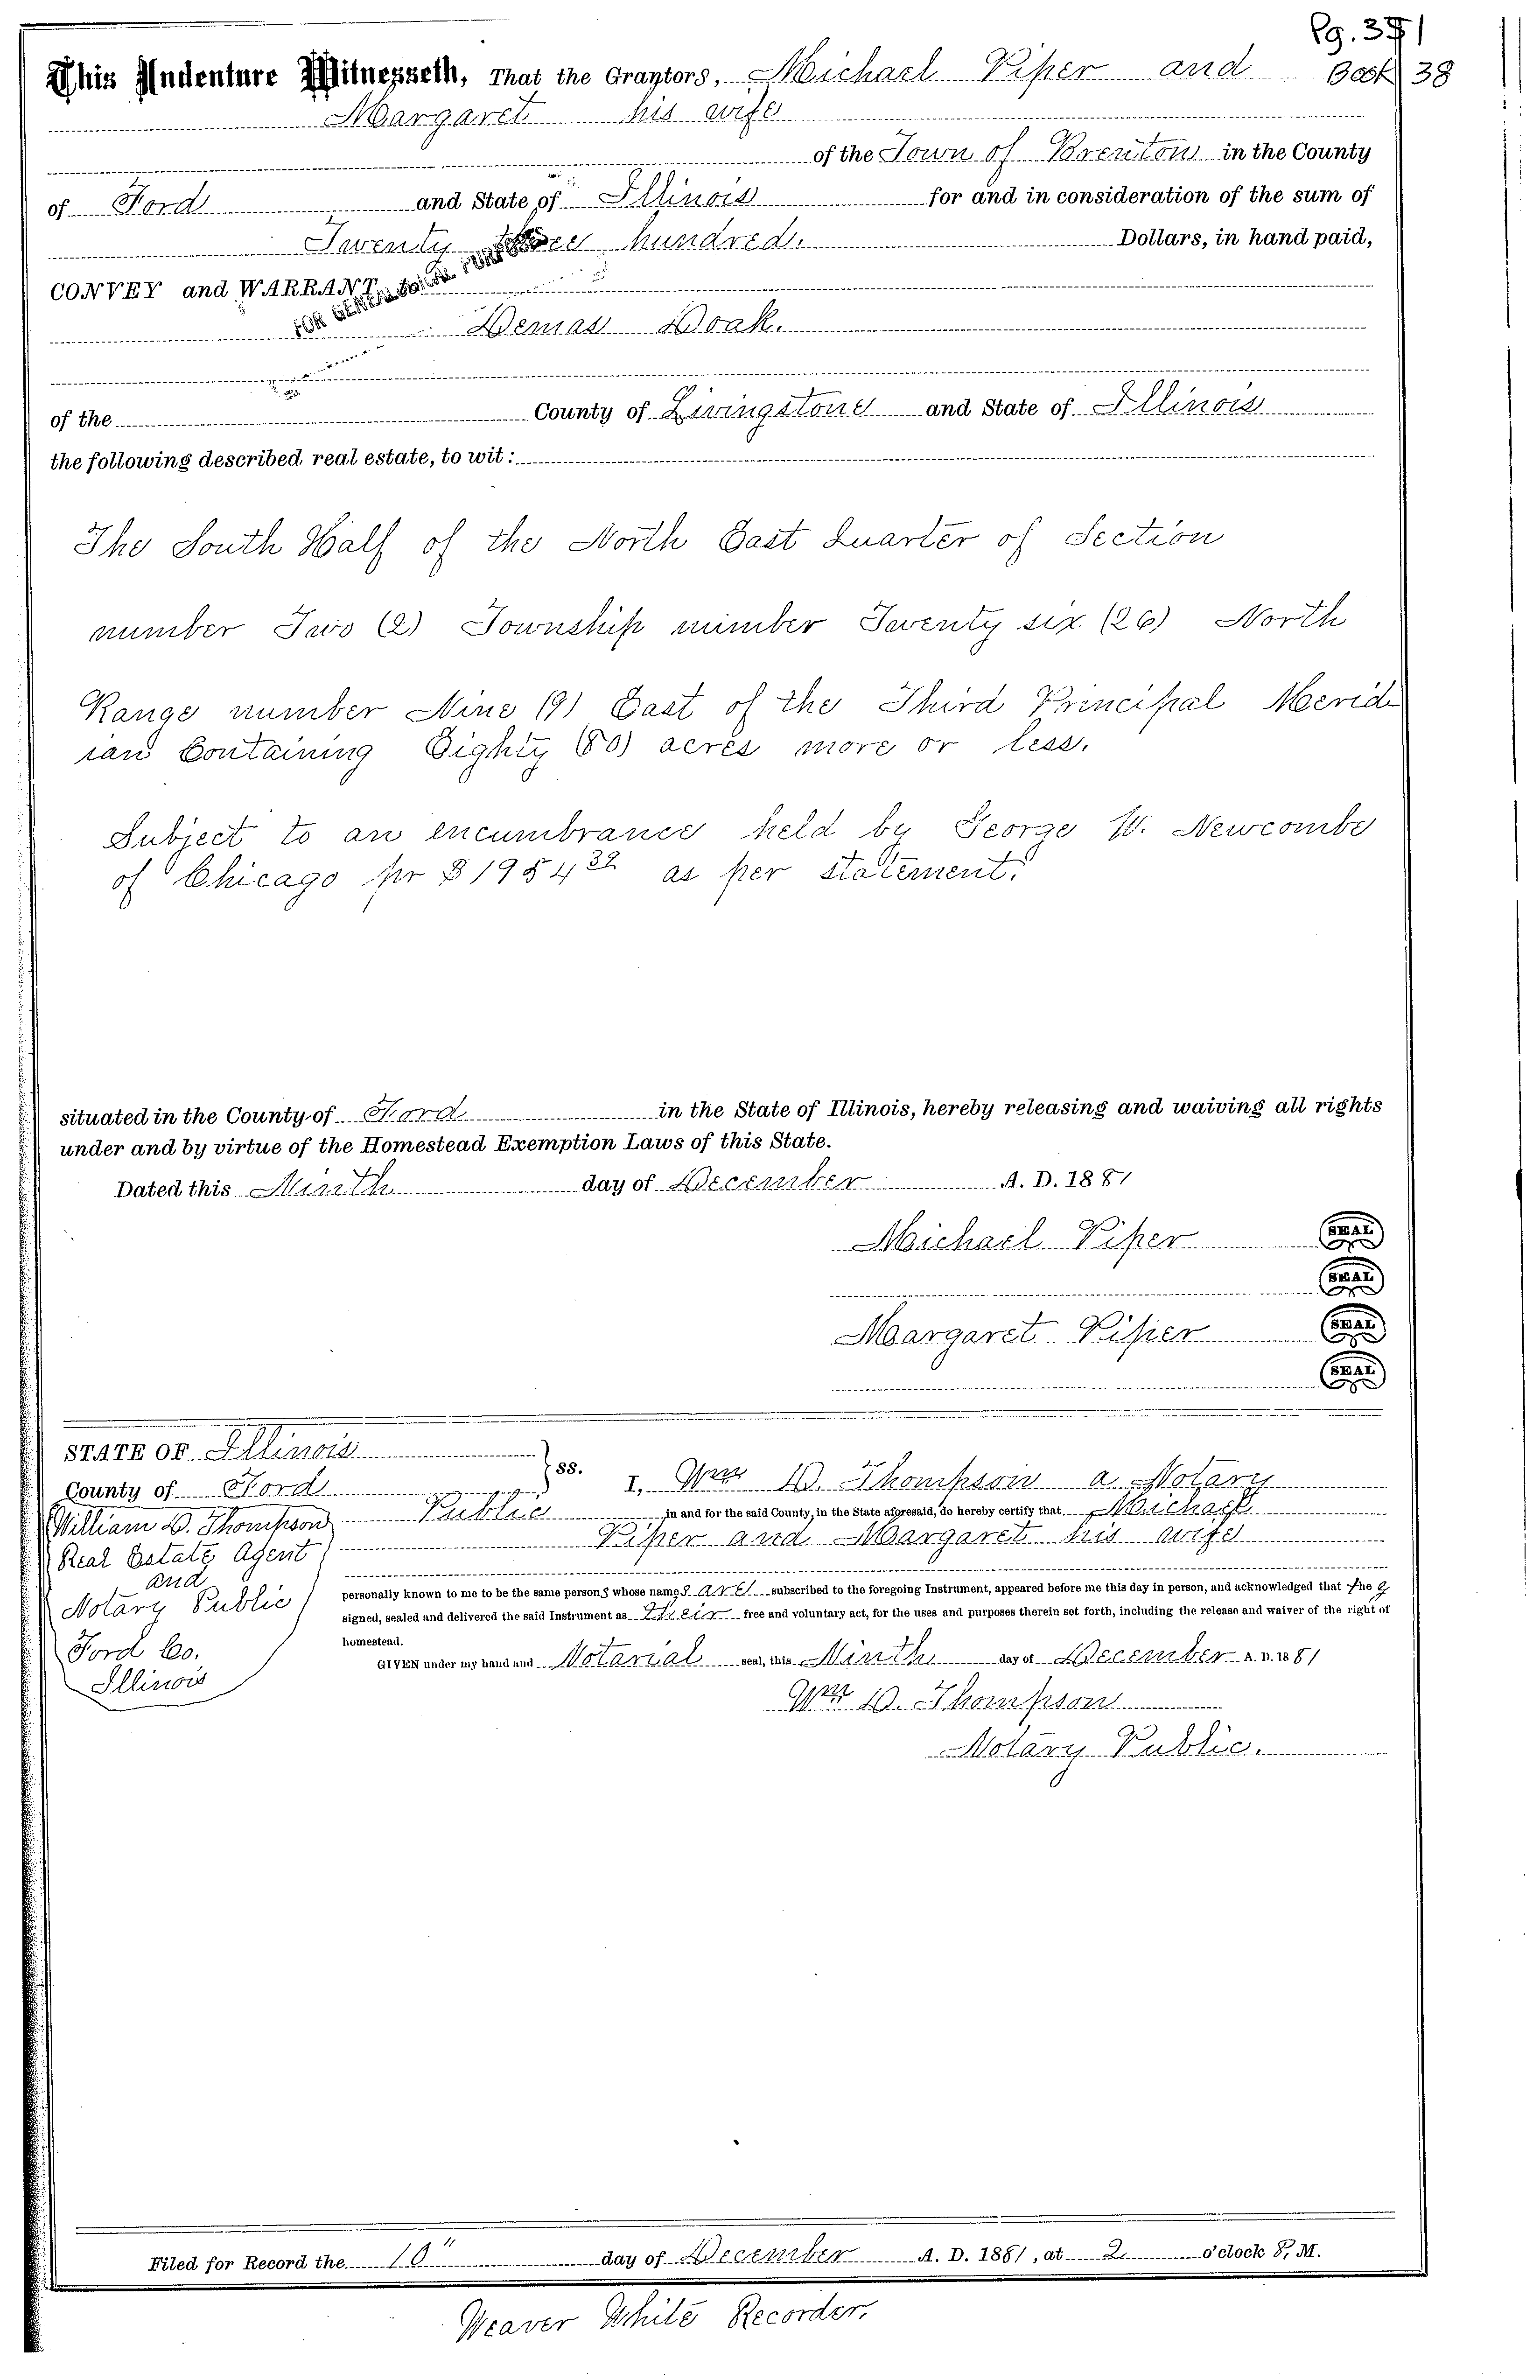 Pg. 371
This Indenture Witnesseth, That the Grantors, Michael Piper and Book 38
Margaret his wife
of the Town of Brenton in the County
of Ford and State of Illinois for and in consideration of the sum of
Twenty three hundred. Dollars, in hand paid,
CONVEY and WARRANT
Demas Doak.
of the County of Livingstone and State of Illinois
the following described real estate, to wit:
The South Half of the North East Quarter of Section
number Two (2) Township number Twenty six (26) North
Range number Nine (9) East of the Third Principal Merid-
ian Containing Eighty (80) acres more or less.
Subject to an encumbrance held by George W. Newcombe
of Chicago for as per statement.
situated in the County of Ford in the State of Illinois, hereby releasing and waiving all rights
under and by virtue of the Homestead Exemption Laws of this State.
Dated this Ninth day of December A. D. 1881
Michael Piper SEAL
SEAL
Margaret Piper SEAL
SEAL
STATE OF Illinois
County of Ford } ss. I, Wm D. Thompson a Notary
Public in and for the said County, in the State aforesaid, do hereby certify that Michael
Piper and Margaret his wife
personally known to me to be the same persons whose names are subscribed to the foregoing Instrument, appeared before me this day in person, and acknowledged that they
signed, sealed and delivered the said Instrument as their free and voluntary act, for the uses and purposes therein set forth, including the release and waiver of the right of
homestead.
GIVEN under my hand and Notarial seal, this Ninth day of December A. D. 1881
Wm D. Thompson
Notary Public.
William D. Thompson
Real Estate Agent
and
Notary Public
Ford Co.
Illinois
Filed for Record the 10" day of December A. D. 1881, at 2 o'clock P. M.
Weaver White Recorder.